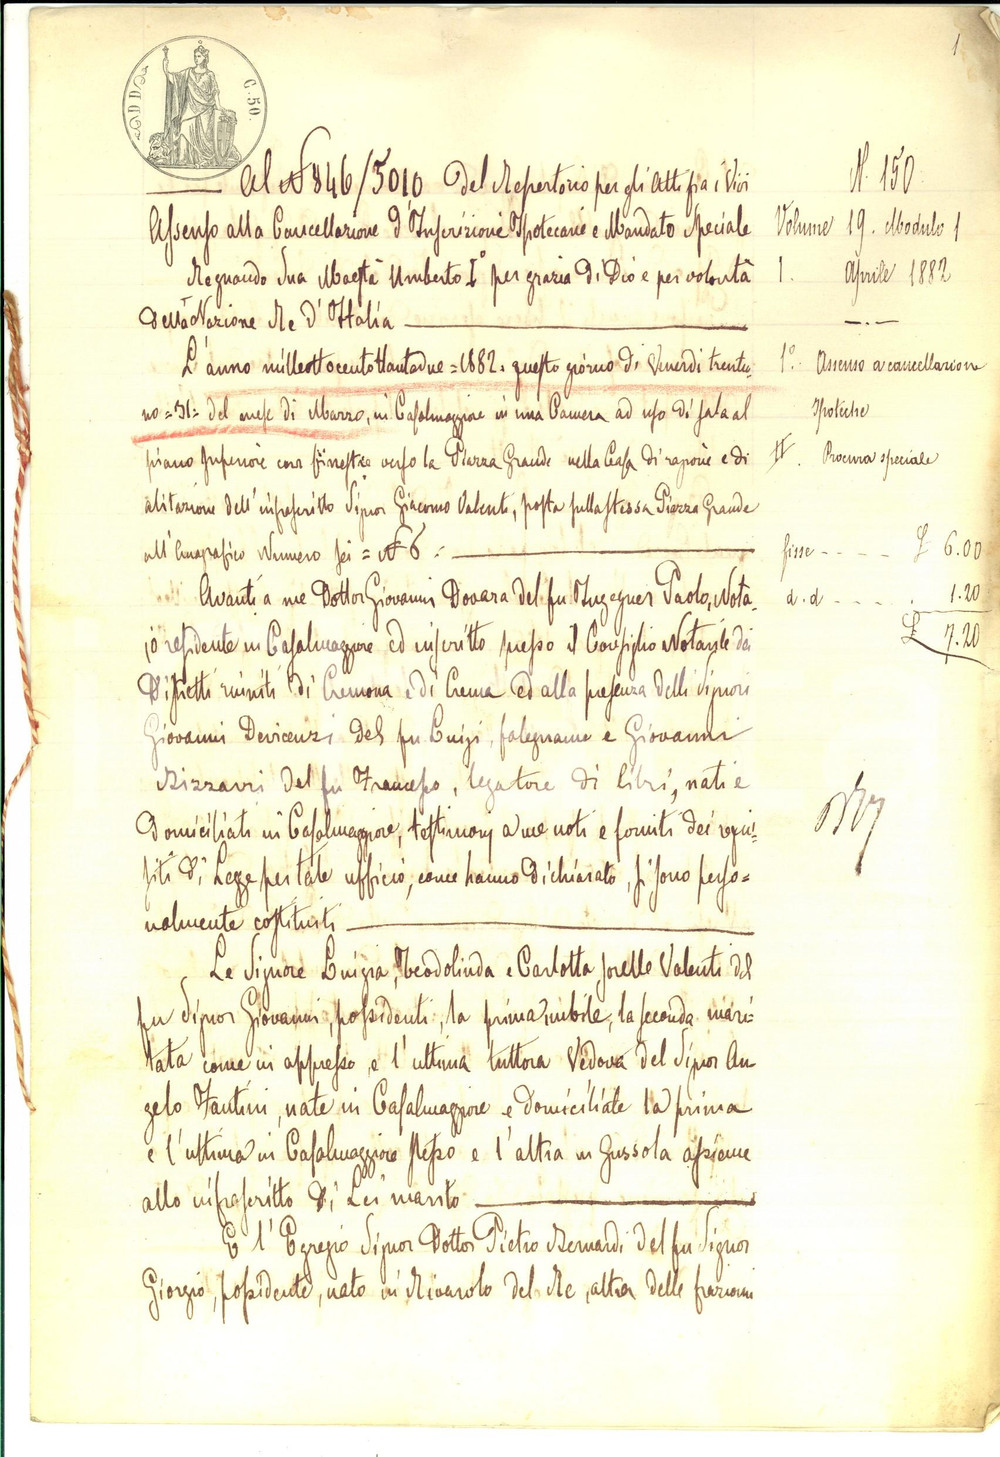 1
C. 50.
Al N 846/5010 del Repertorio per gli Atti fra i Vivi
Assenso alla Cancellazione d'Inscrizioni Ipotecarie e Mandato Speciale
Regnando Sua Maestà Umberto I° per grazia di Dio e per volontà
della Nazione Re d'Italia
L'anno milleottocentottantadue = 1882. questo giorno di Venerdi trentu-
no = 31 = del mese di Marzo, in Casalmaggiore in una Camera ad uso di sala al
piano Inferiore con finestre verso la Piazza Grande nella Casa di ragione e di
abitazione dell'infrascritto Signor Giacomo Valenti, posta sulla stessa Piazza Grande
all'Anagrafico Numero sei = N 6 =
Avanti a me Dottor Giovanni Dovara del fu Ingegner Paolo, Nota-
jo residente in Casalmaggiore ed inscritto presso il Consiglio Notarile dei
Distretti riuniti di Cremona e di Crema ed alla presenza delli Signori
Giovanni Devicenzi del fu Luigi, falegname e Giovanni
Bizzarri del fu Francesco, legatore di libri, nati e
domiciliati in Casalmaggiore, testimonj a me noti e forniti dei requi-
siti di Legge per tale ufficio, come hanno dichiarato, si sono perso=
nalmente costituiti
Le Signore Luigia, Teodolinda e Carlotta sorelle Valenti del
fu Signor Giovanni, possidenti, la prima nubile, la seconda mari-
tata come in appresso, e l'ultima tuttora Vedova del Signor An
gelo Fantini, nate in Casalmaggiore e domiciliate la prima
e l'ultima in Casalmaggiore stesso e l'altra in Gussola assieme
allo infrascritto di Lei marito
E l'Egregio Signor Dottor Pietro Bernardi del fu Signor
Giorgio, possidente, nato in Rivarolo del Re, altra delle frazioni
N. 150
Volume 19. Modulo 1
1. Aprile 1882
1° Assenso a cancellazione
Ipoteche
II. Procura speciale
fisse - - - - £ 6.00
d. d - - - - . 1.20
£ 7.20